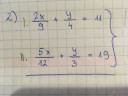 2) I. 2x/9 + y/4 = 11
II. 5x/12 + y/3 = 19